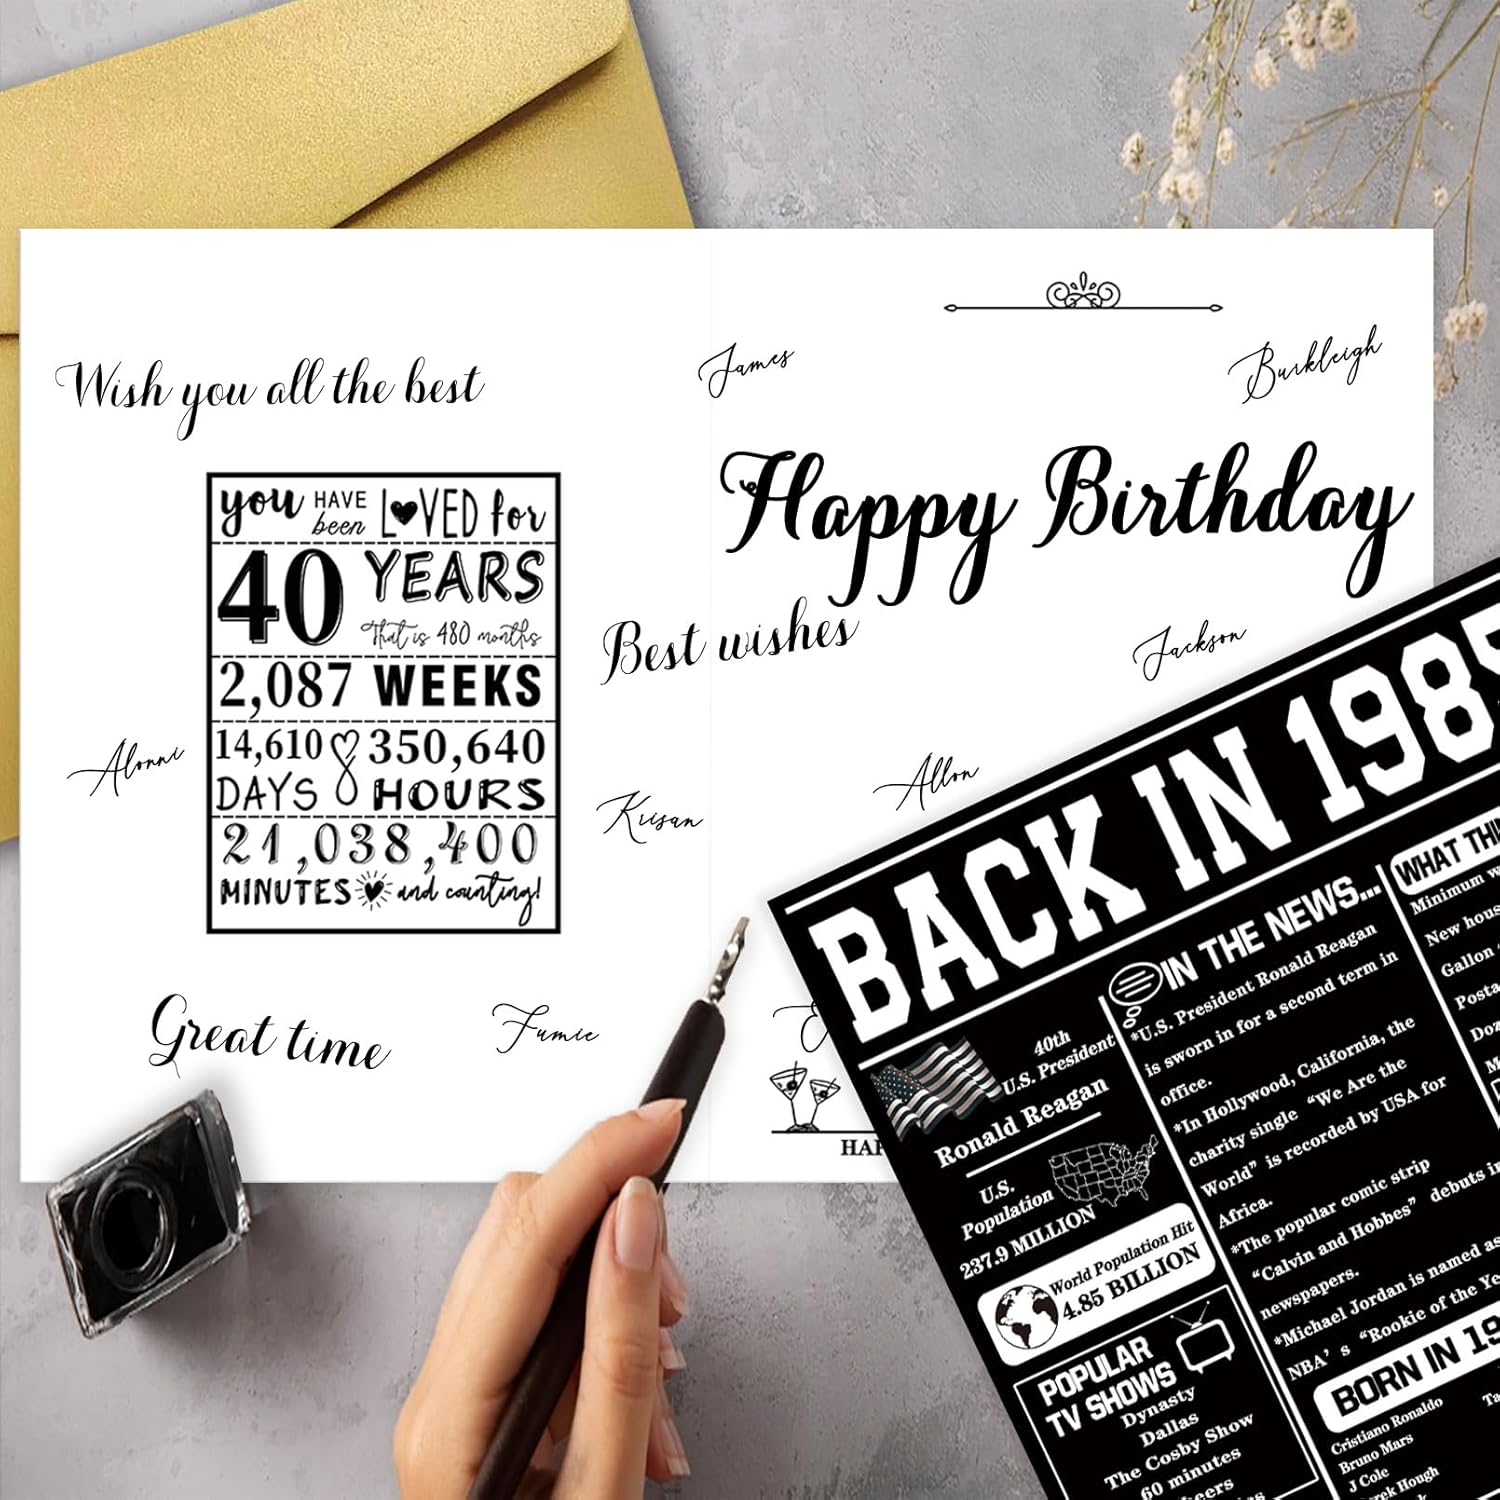 Wish you all the best
James
Burkleigh
Happy Birthday
you HAVE been LOVED for
40 YEARS
That is 480 months
2,087 WEEKS
14,610 350,640
DAYS HOURS
21,038,400
MINUTES and counting!
Best wishes
Jackson
Alonni
Krisan
Allon
Great time
Fumie
BACK IN 1985
IN THE NEWS...
*U.S. President Ronald Reagan
is sworn in for a second term in
office.
*In Hollywood, California, the
charity single “We Are the
World” is recorded by USA for
Africa.
*The popular comic strip
“Calvin and Hobbes” debuts in
newspapers.
*Michael Jordan is named as
NBA’s “Rookie of the Ye
40th
U.S. President
Ronald Reagan
U.S.
Population
237.9 MILLION
World Population Hit
4.85 BILLION
POPULAR
TV SHOWS
Dynasty
Dallas
The Cosby Show
60 minutes
WHAT THI
Minimum w
New hous
Gallon
Posta
Doz
BORN IN 19
Cristiano Ronaldo
Bruno Mars
J Cole
Hough